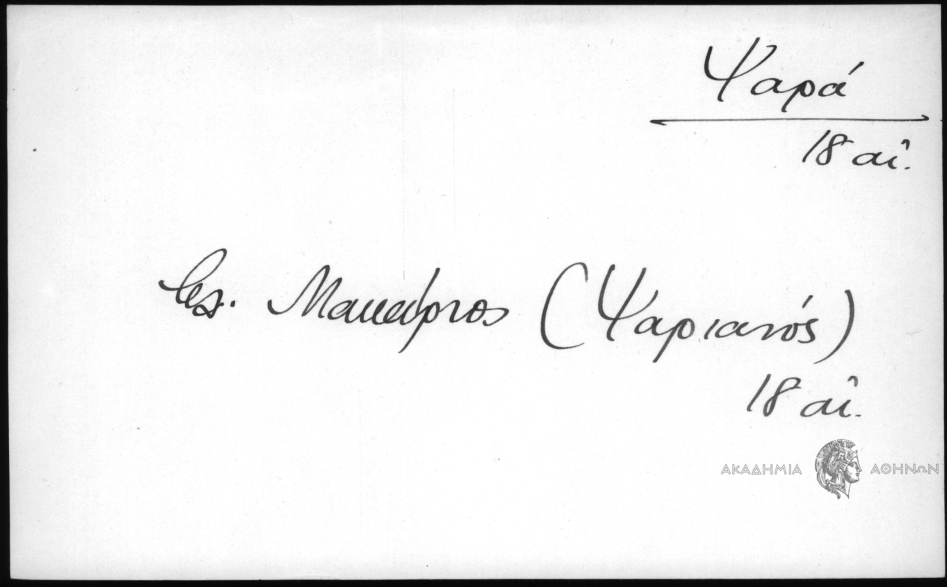 Ψαρά
18 αἰ.
βλ. Μακάριος (Ψαριανός)
18 αἰ.
ΑΚΑΔΗΜΙΑ ΑΘΗΝΩΝ